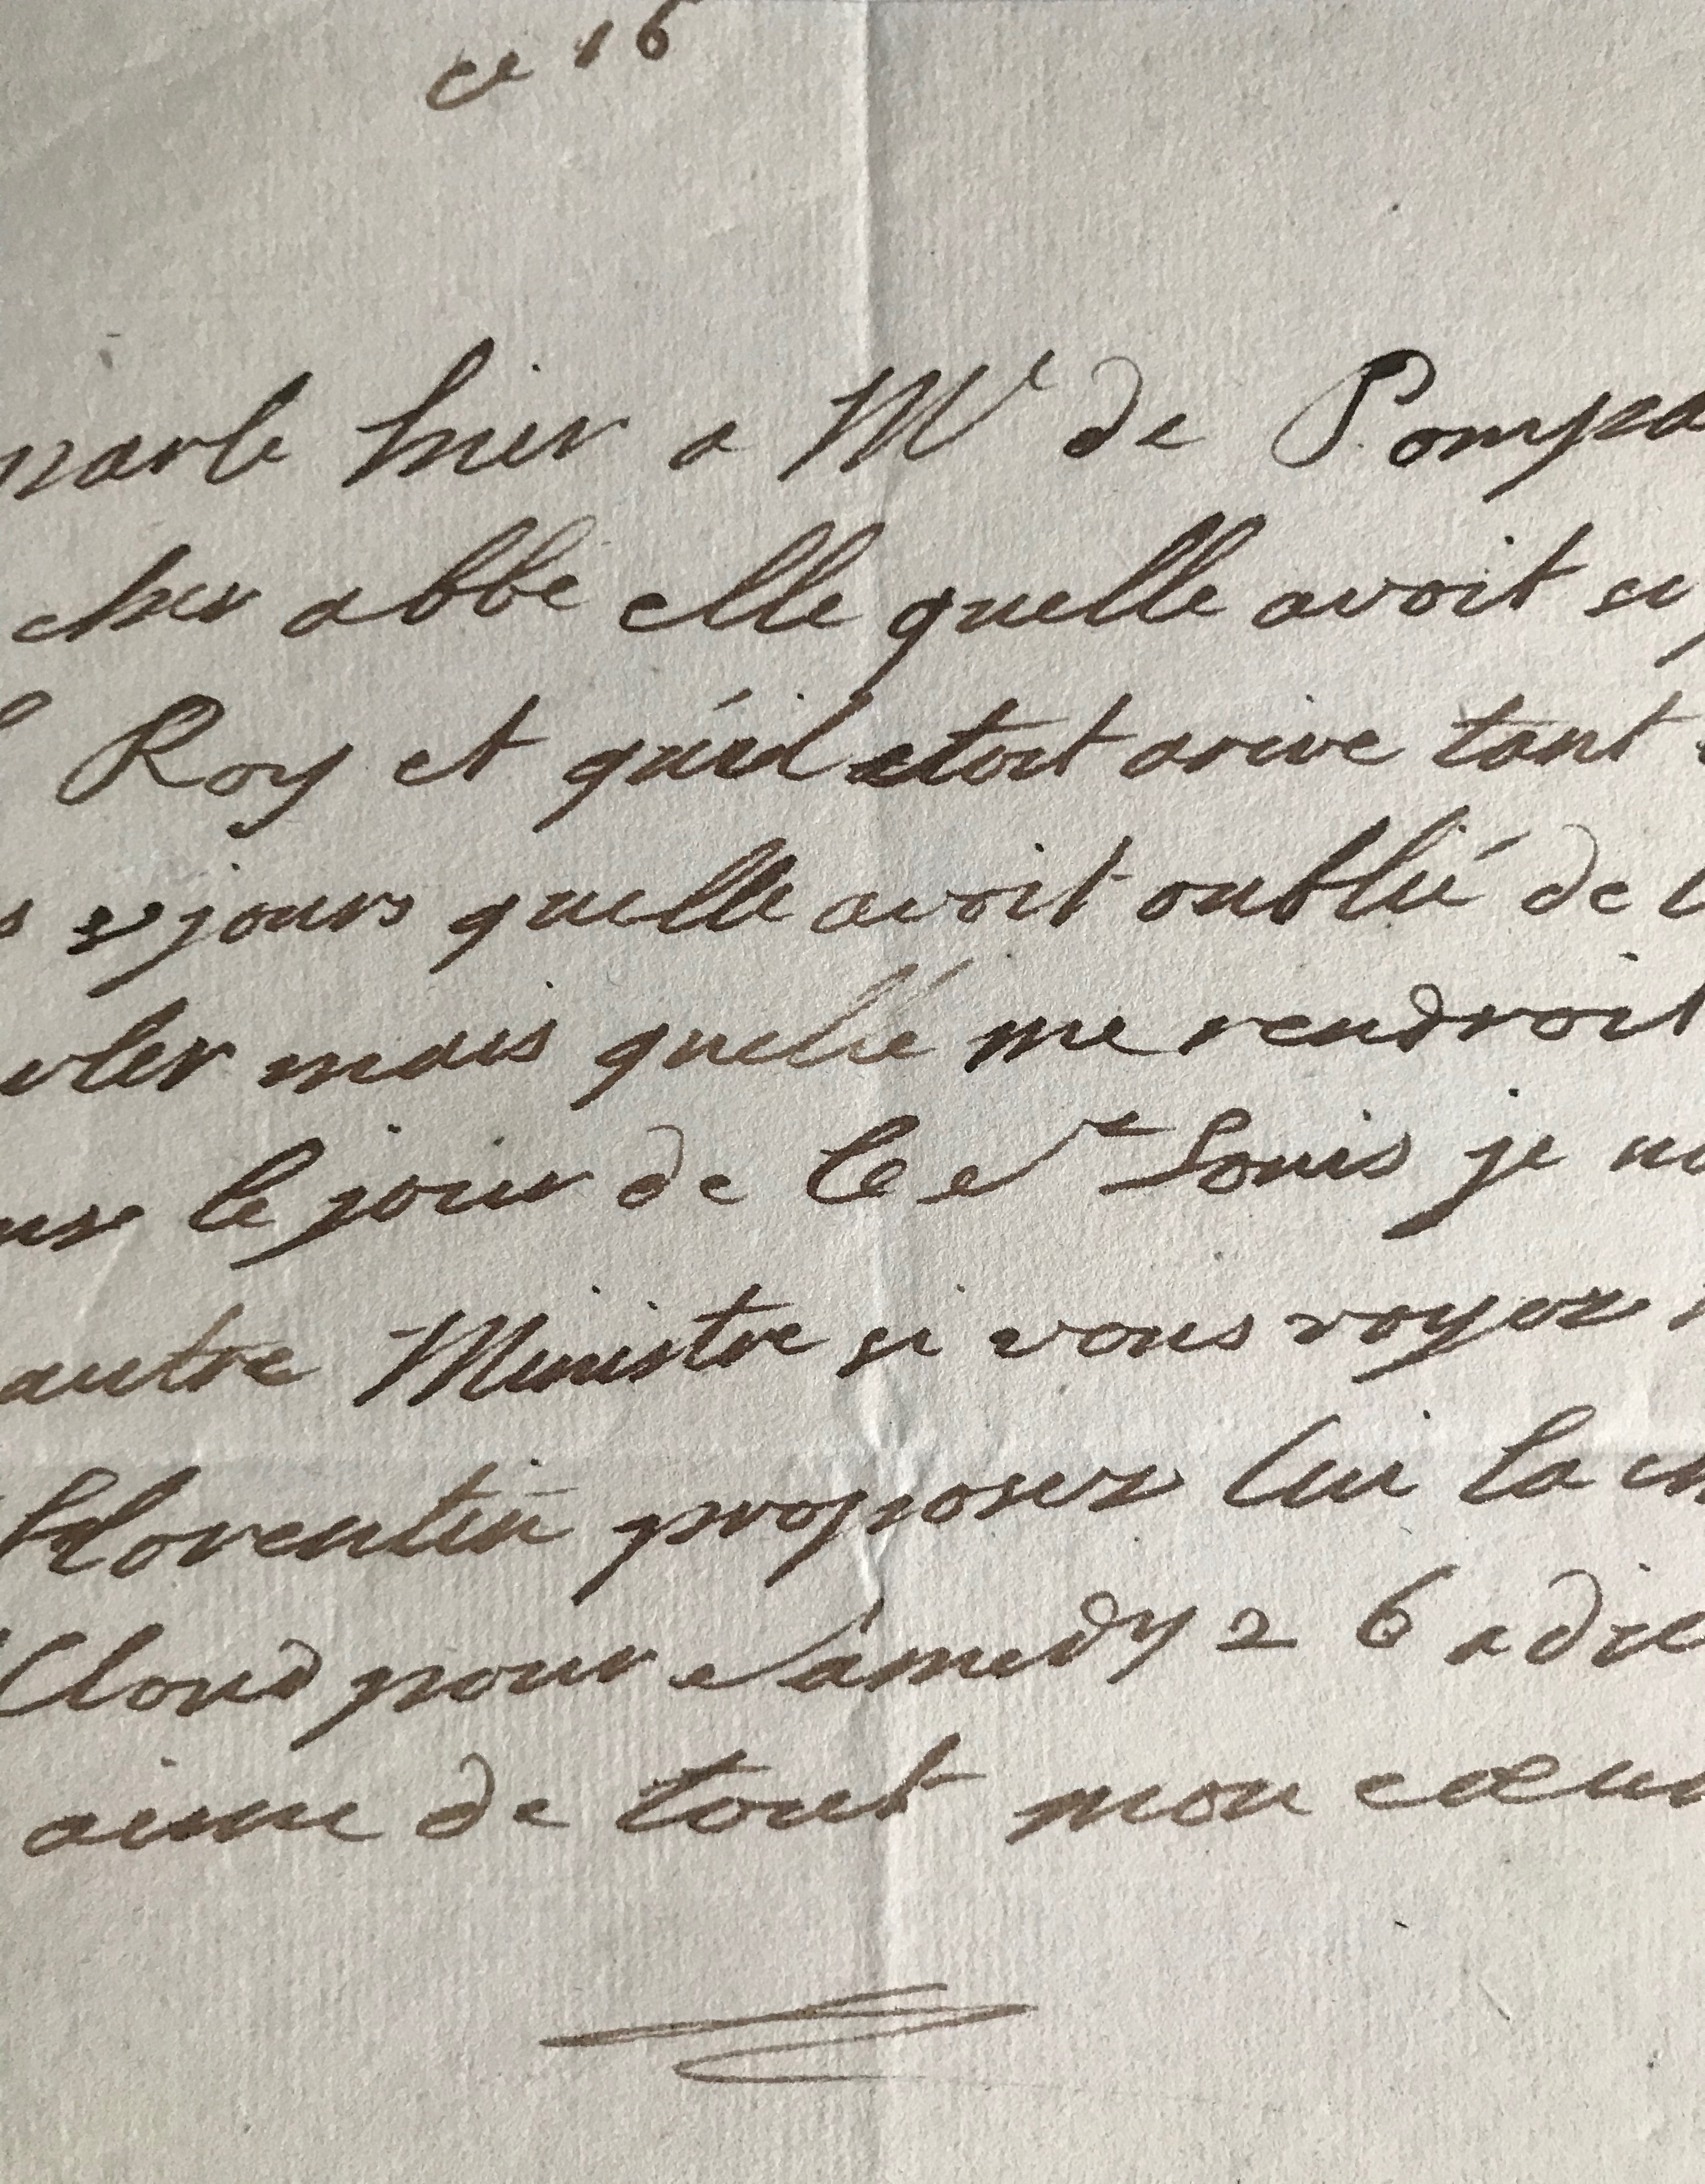 ce 16
parle hier a Me de Pompa
cher abbé elle quelle avoit
Roy et qu'il etoit arive tant
jours quelle avoit oublié de
mais quelle me rendroit
le jour de la St Louis je
autre Ministre si vous voyez
florentin proposez lui la
Cloud pour Samedy 26 adie
aime de tout mon cœur